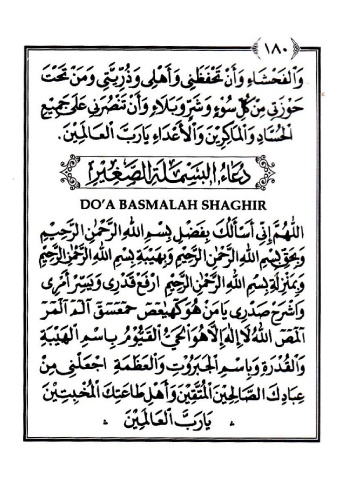 ١٨٠
وَالْفَحْشَاءِ وَأَنْ تَحْفَظَنِي وَأَهْلِي وَذُرِّيَّتِي وَمَنْ تَحْتَ
حَوْزَتِي مِنْ كُلِّ سُوْءٍ وَشَرٍّ وَبَلَاءٍ وَأَنْ تَنْصُرَنِي عَلَى جَمِيْعِ
الْحُسَّادِ وَالْمَاكِرِيْنَ وَالْأَعْدَاءِ يَارَبَّ الْعَالَمِيْنَ.
دُعَاءُ الْبَسْمَلَةِ الصَّغِيْرِ
DO'A BASMALAH SHAGHIR
اَللّٰهُمَّ إِنِّي أَسْأَلُكَ بِفَضْلِ بِسْمِ اللهِ الرَّحْمٰنِ الرَّحِيْمِ
وَبِحَقِّ بِسْمِ اللهِ الرَّحْمٰنِ الرَّحِيْمِ وَبِهَيْبَةِ بِسْمِ اللهِ الرَّحْمٰنِ الرَّحِيْمِ
وَبِمَنْزِلَةِ بِسْمِ اللهِ الرَّحْمٰنِ الرَّحِيْمِ اِرْفَعْ قَدْرِي وَيَسِّرْ أَمْرِي
وَاشْرَحْ صَدْرِي يَا مَنْ هُوَ كٓهٰيٰعٓصٓ حٰمٓعٓسٓقٓ الٓمٓ الٓمٓرٰ
الٓمٓصٓ اَللهُ لَا إِلٰهَ إِلَّا هُوَ الْحَيُّ الْقَيُّوْمُ بِاسْمِ الْهَيْبَةِ
وَالْقُدْرَةِ وَبِاسْمِ الْجَبَرُوْتِ وَالْعَظَمَةِ اِجْعَلْنِي مِنْ
عِبَادِكَ الصَّالِحِيْنَ الْمُتَّقِيْنَ وَأَهْلِ طَاعَتِكَ الْمُخْبِتِيْنَ
يَارَبَّ الْعَالَمِيْنَ